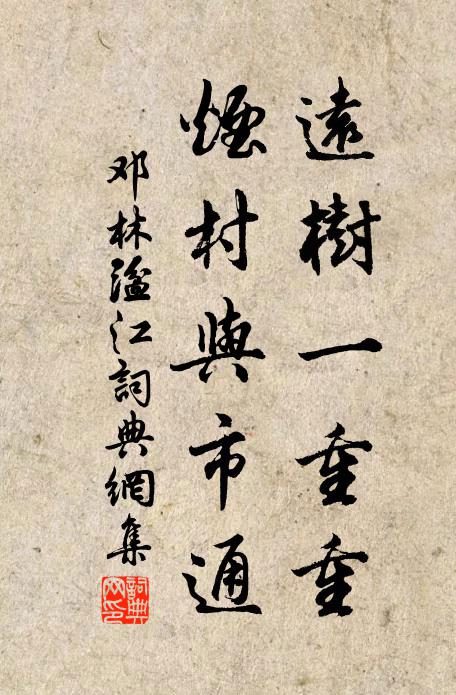 遠樹一重重
煙村與市通
邓林溢江詞典網集
詞典网印